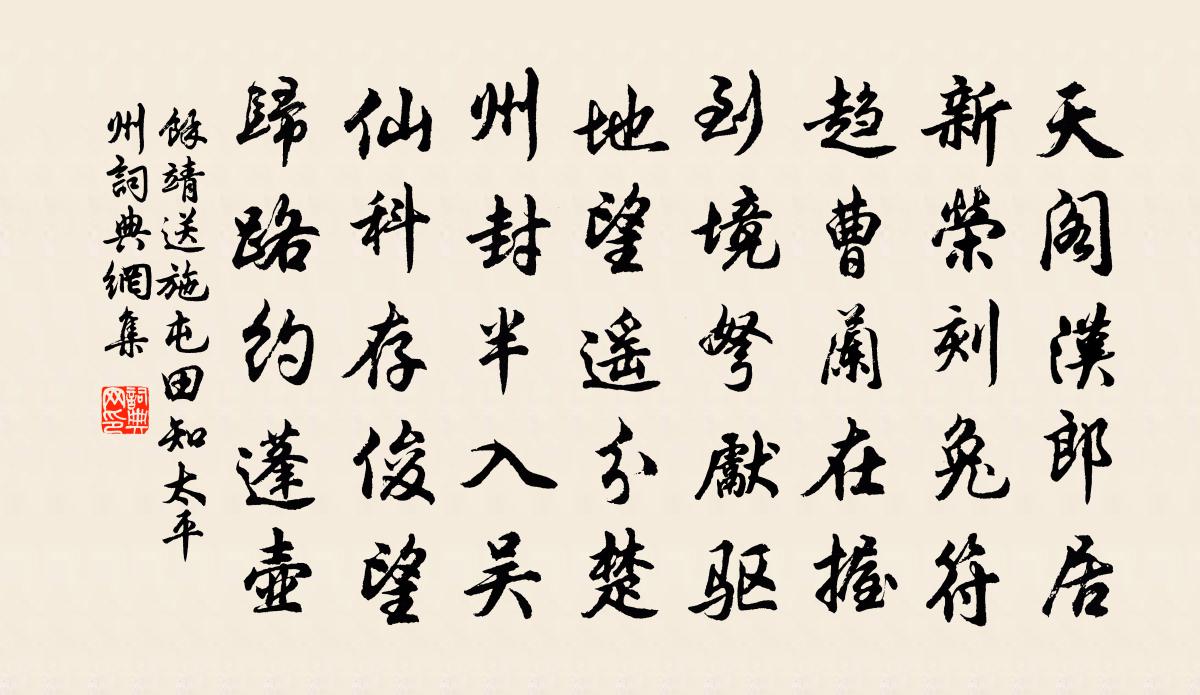 天阁漢郎居
新榮刻兔符
趋曹蘭在握
到境弩獻驱
地望遥分楚
州封半入吴
仙科存俊望
歸路约蓬壶
餘靖送施屯田知太平
州詞典網集
詞典
网印